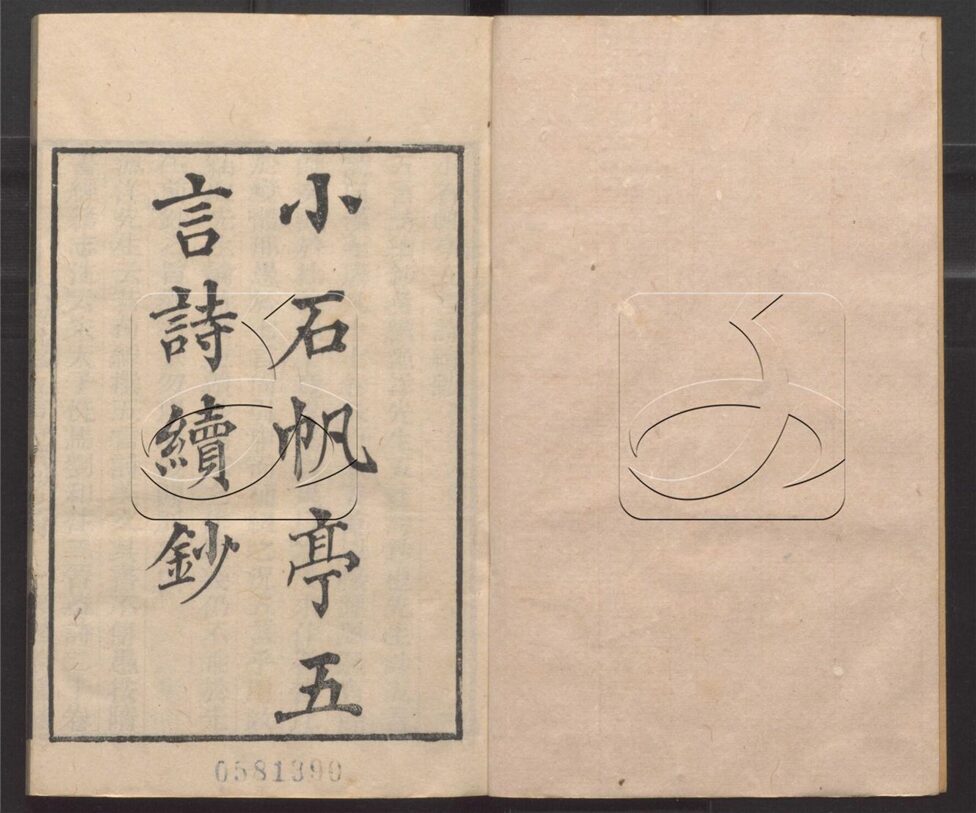 小石帆亭五
言詩續鈔
0581390